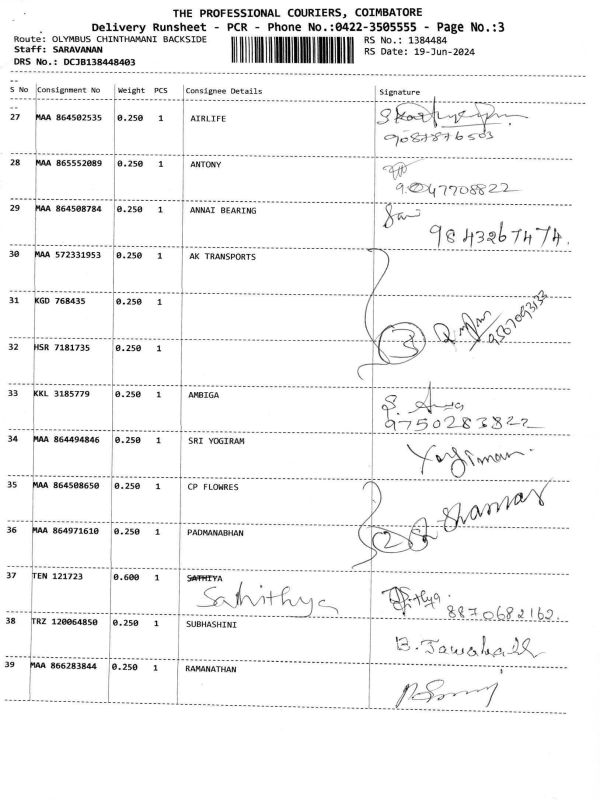 THE PROFESSIONAL COURIERS, COIMBATORE
Delivery Runsheet - PCR - Phone No.:0422-3505555 - Page No.:3
Route: OLYMBUS CHINTHAMANI BACKSIDE RS No.: 1384484
Staff: SARAVANAN RS Date: 19-Jun-2024
DRS No.: DCJB138448403
S No Consignment No Weight PCS Consignee Details Signature
27 MAA 864502535 0.250 1 AIRLIFE
9087876503
28 MAA 865552089 0.250 1 ANTONY
9047708822
29 MAA 864508784 0.250 1 ANNAI BEARING
9843267474.
30 MAA 572331953 0.250 1 AK TRANSPORTS
31 KGD 768435 0.250 1
3
32 HSR 7181735 0.250 1
33 KKL 3185779 0.250 1 AMBIGA
9750283822
34 MAA 864494846 0.250 1 SRI YOGIRAM
35 MAA 864508650 0.250 1 CP FLOWRES
36 MAA 864971610 0.250 1 PADMANABHAN
2
37 TEN 121723 0.600 1 SATHIYA
Sahithya
8870682162.
38 TRZ 120064850 0.250 1 SUBHASHINI
39 MAA 866283844 0.250 1 RAMANATHAN